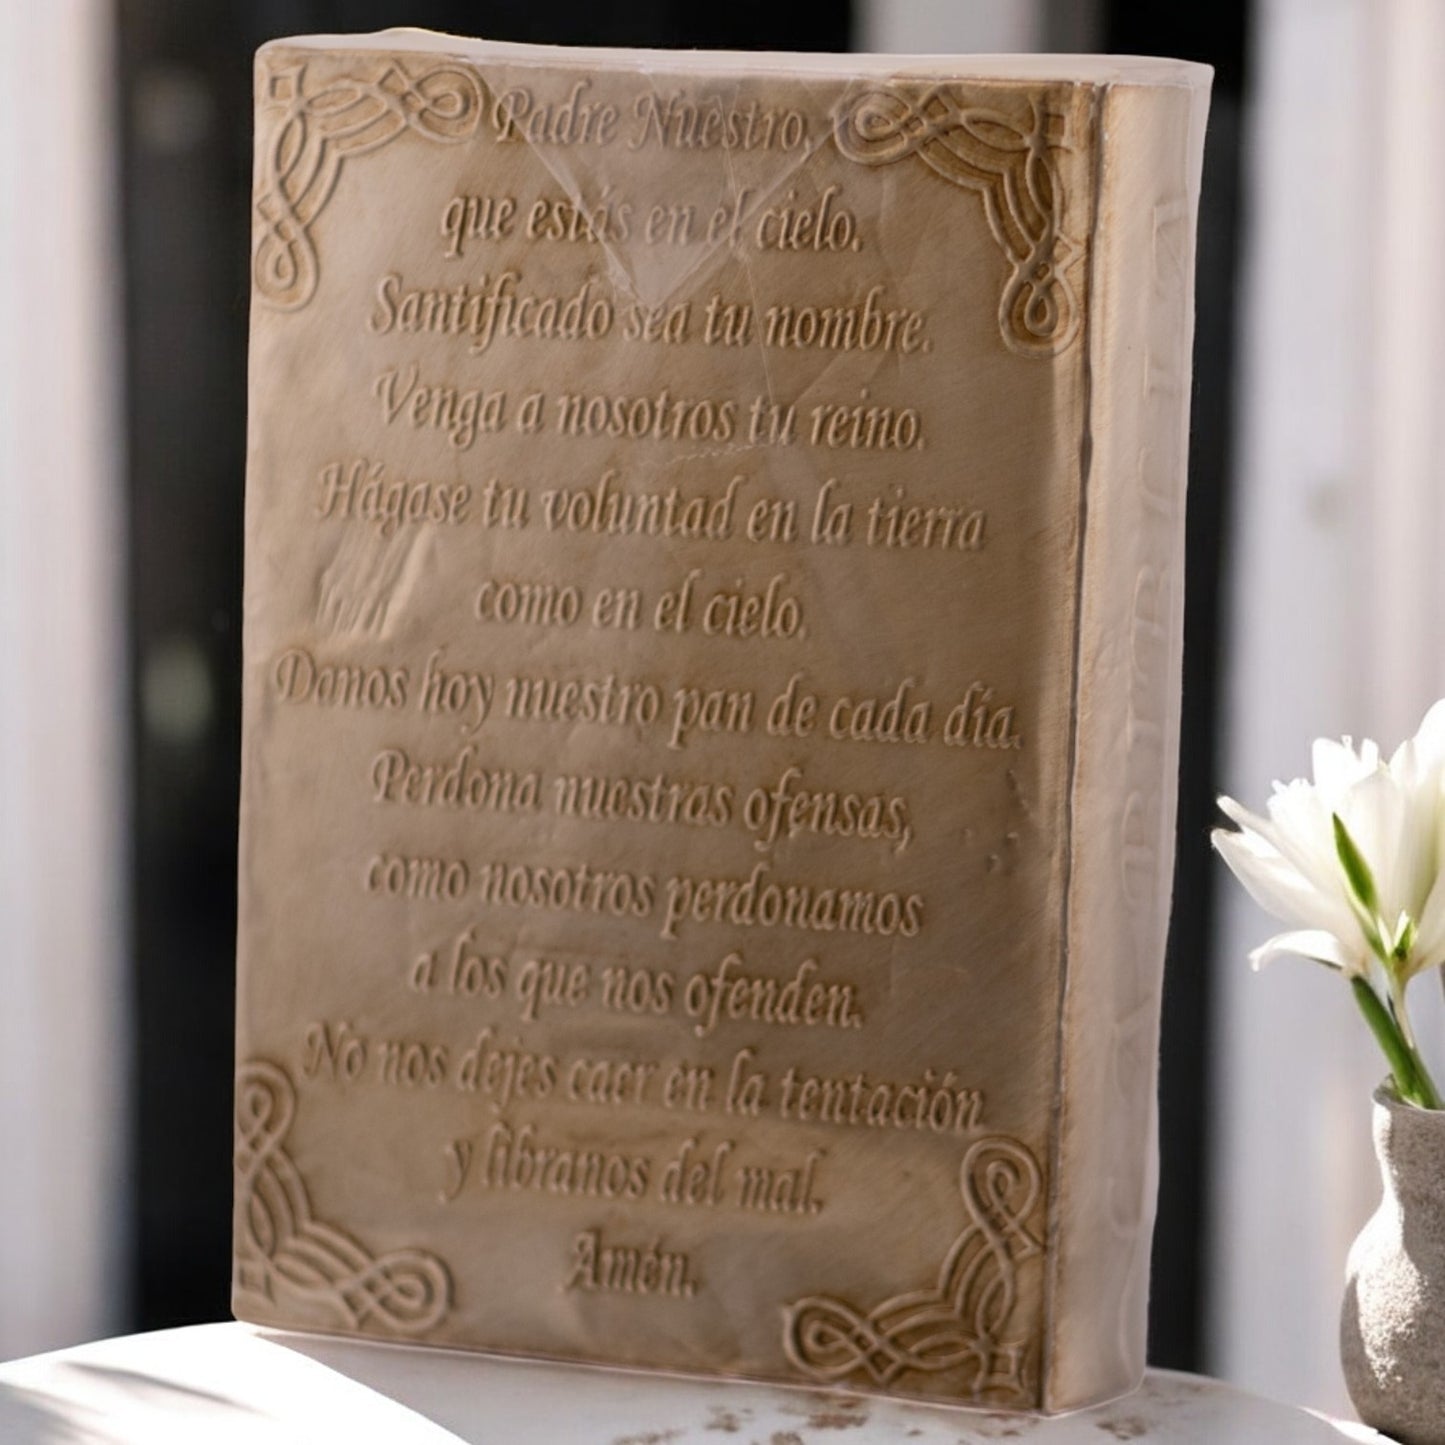 Padre Nuestro,
que estás en el cielo.
Santificado sea tu nombre.
Venga a nosotros tu reino.
Hágase tu voluntad en la tierra
como en el cielo.
Danos hoy nuestro pan de cada día.
Perdona nuestras ofensas,
como nosotros perdonamos
a los que nos ofenden.
No nos dejes caer en la tentación
y líbranos del mal.
Amén.
LA BIBLIA